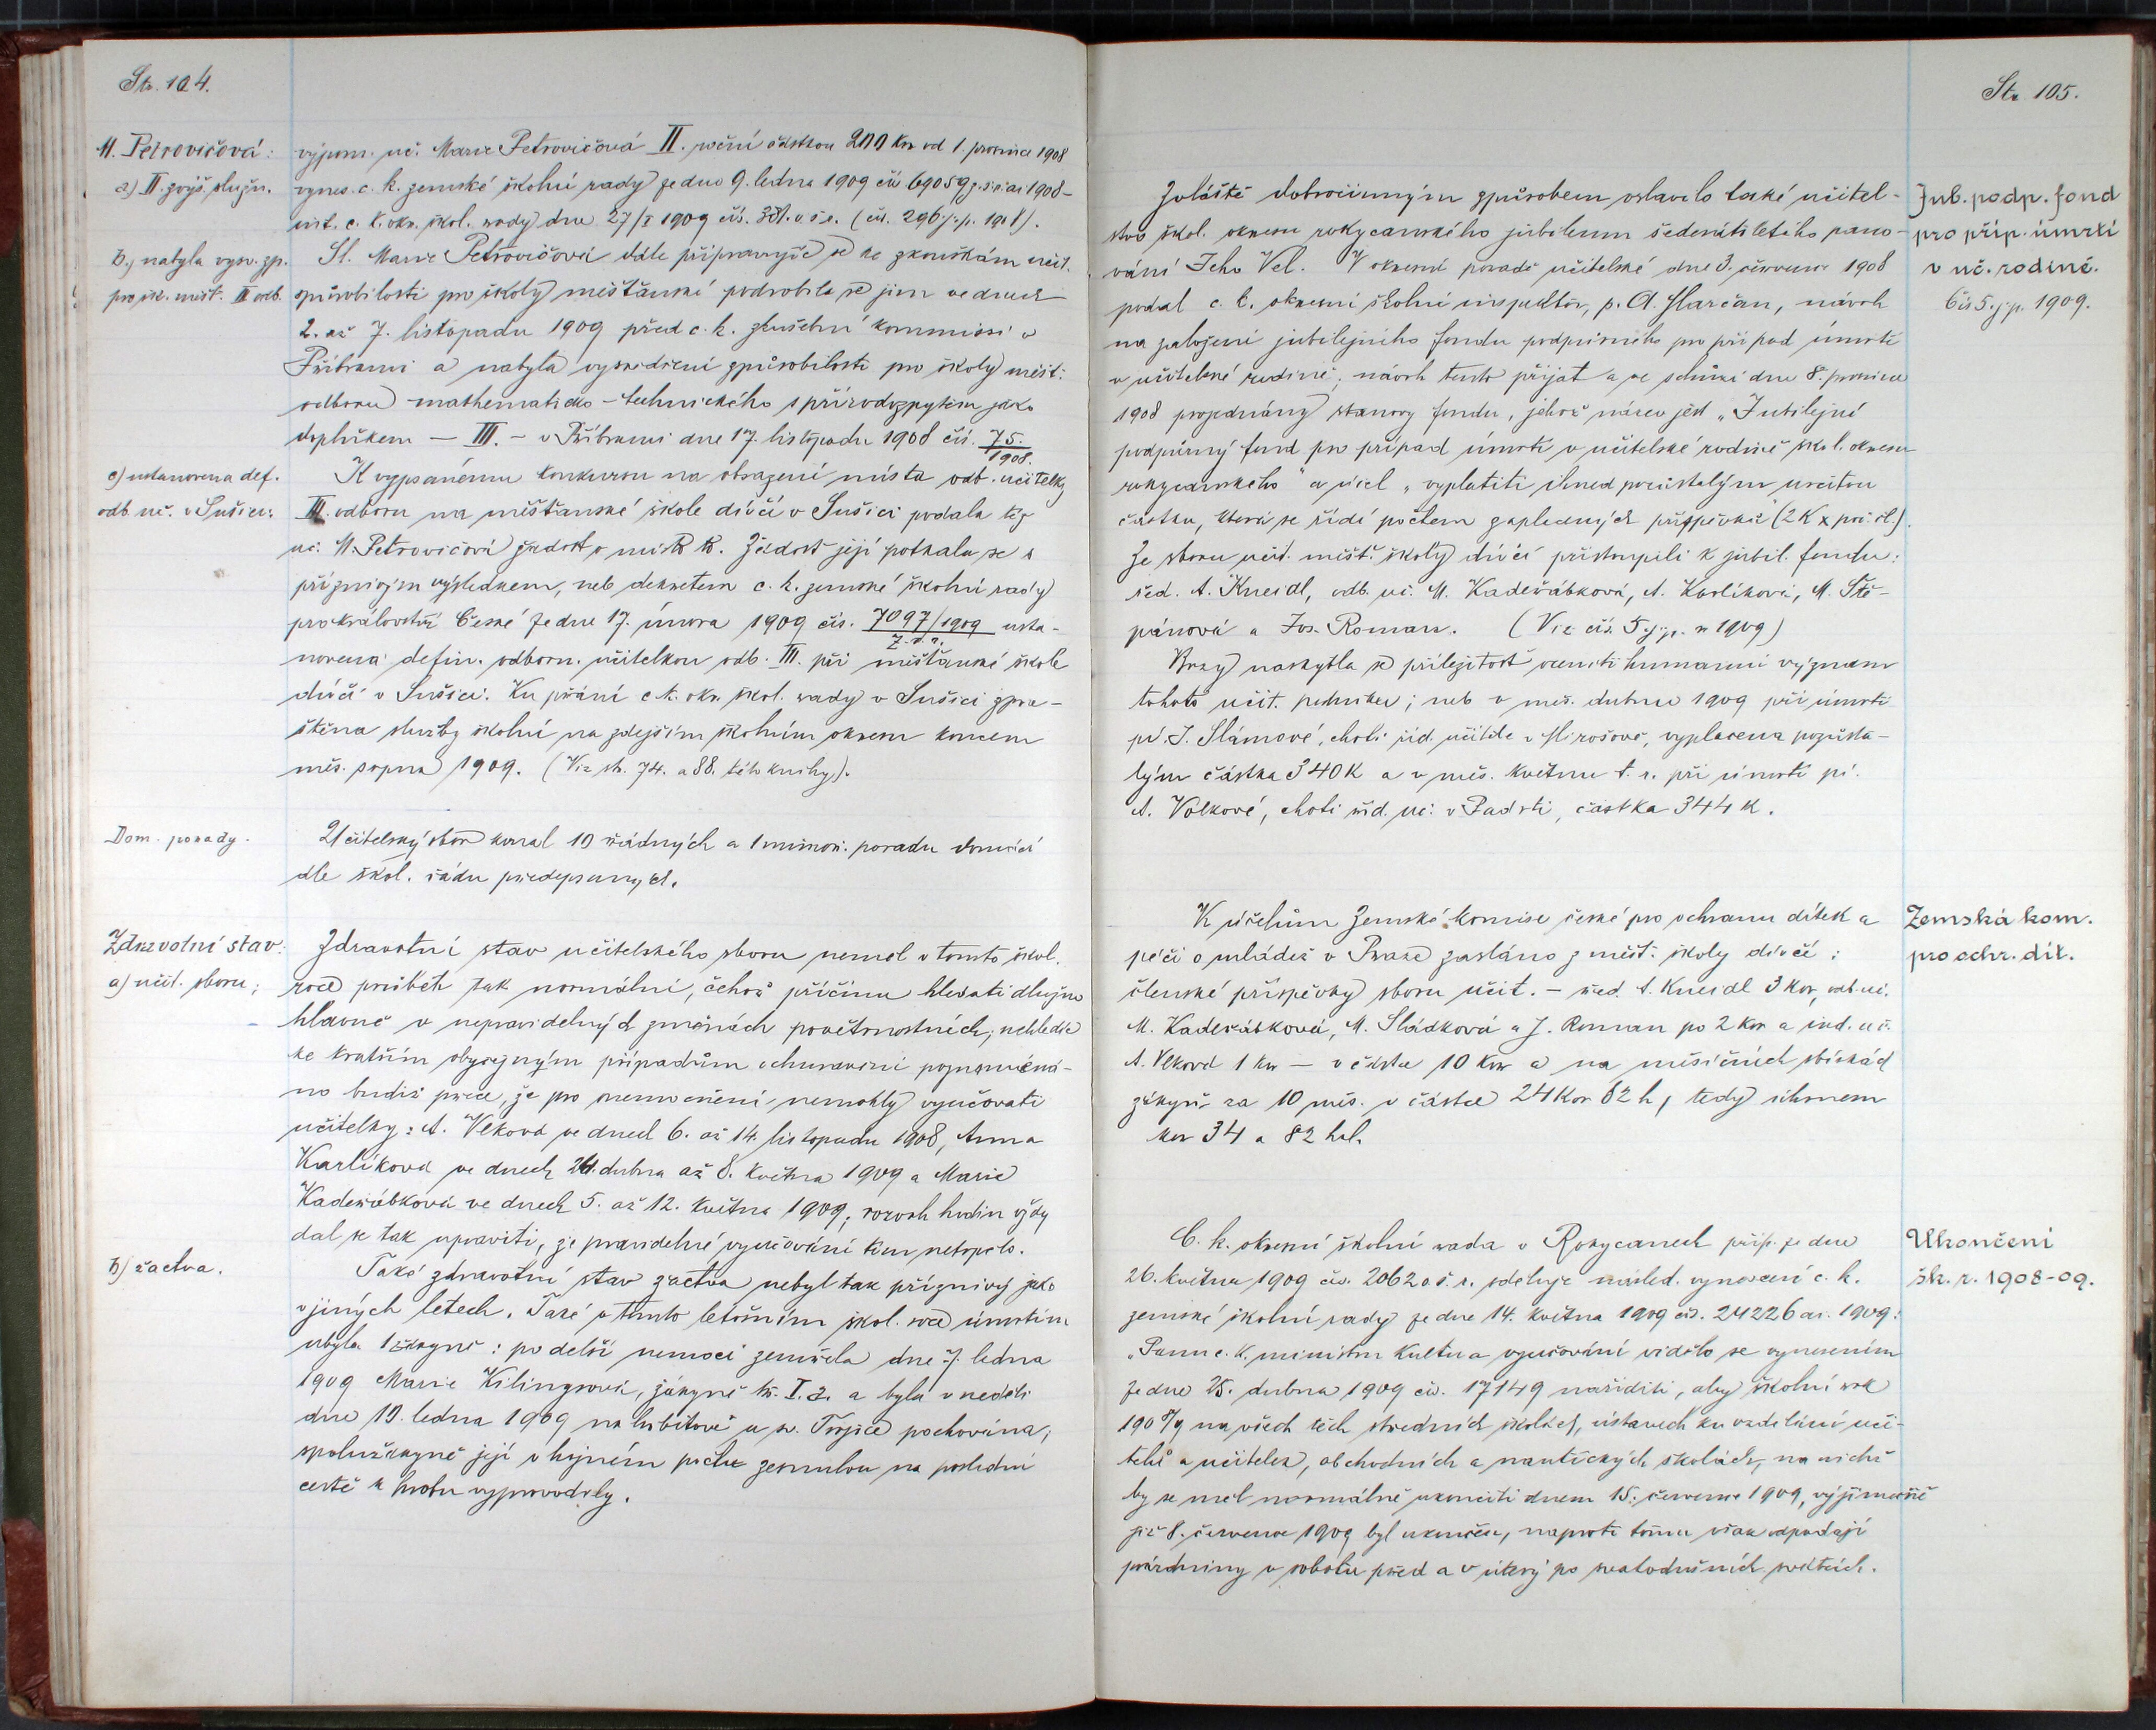 Str. 104.
M. Petrovičová:
a) II. zvýš. služn.
výpom. uč. Marie Petrovičová II. roční částkou 200 Kor od 1. prosince 1908
vynes. c. k. zemské školní rady ze dne 9. ledna 1909 čís. 69059 z. š. r. ai 1908 –
int. c. k. okr. škol. rady dne 27/I 1909 čís. (čís. 296 j. p. 1908).
b.) nabyla vysv. zp.
pro šk. měšť. III. odb.
Sl. Marie Petrovičová dále připravujíc se ke zkouškám učit.
způsobilosti pro školy měšťanské podrobila se jim ve dnech
2. až 7. listopadu 1909 před c. k. zkušební kommissí v
Příbrami a nabyla vysvědčení způsobilosti pro školy měšť.
odboru mathematicko-technického s přírodozpytem jako
doplňkem — III. – v Příbrami dne 17. listopadu 1908 čís. 75./1908.
c) ustanovena def.
odb. uč. v Sušici:
K vypsanému konkursu na obsazení místa odb. učitelky
III. odboru na měšťanské škole dívčí v Sušici podala též
uč. M. Petrovičová žádost o místo to. Žádost její potkala se s
příznivým výsledkem, neb dekretem c. k. zemské školní rady
pro království České ze dne 17. února 1909 čís. 7097/1909 z. š. r. usta-
novena defin. odborn. učitelkou odb. III. při měšťanské škole
dívčí v Sušici. Ku přání c. k. okr. škol. rady v Sušici zpro-
štěna služby školní na zdejším školním okrese koncem
měs. srpna 1909. (Viz str. 74. a 88. této knihy).
Dom. porady.
Učitelský sbor konal 10 řádných a 1 mimoř. poradu domácí
dle škol. řádu předepsaných.
Zdravotní stav:
a) učit. sboru;
Zdravotní stav učitelského sboru neměl v tomto škol.
roce průběh tak normální, čehož příčinu hledati dlužno
hlavně v nepravidelných změnách povětrnostních; nehledíc
ke kratším obyčejným případům churavění poznamená-
no budiž prvé, že pro onemocnění nemohly vyučovati
učitelky: A. Vlková ve dnech 6. až 14. listopadu 1908, Anna
Karlíková ve dnech 24. dubna až 8. května 1909 a Marie
Kadeřábková ve dnech 5. až 12. května 1909; rozvrh hodin vždy
dal se tak upraviti, že pravidelné vyučování tím netrpělo.
b) žactva.
Také zdravotní stav žactva nebyl tak příznivý jako
v jiných letech. Také v tomto letošním škol. roce úmrtím
ubyla 1 žákyně: po delší nemoci zemřela dne 7. ledna
1909 Marie Kilingrová, žákyně tř. I. a byla v neděli
dne 10. ledna 1909 na hřbitově u sv. Trojice pochována;
spolužákyně její v hojném počtu zesnulou na poslední
cestě k hrobu vyprovodily.
Str. 105.
Jub. podp. fond
pro příp. úmrtí
v uč. rodině.
Čís 5. j. p. 1909.
Zvláště dobročinným způsobem oslavilo také učitel-
stvo škol. okresu rokycanského jubileum šedesátiletého pano-
vání Jeho Vel. V okresní poradě učitelské dne 3. července 1908
podal c. k. okresní školní inspektor, p. A. Harčan, návrh
na založení jubilejního fondu podpůrného pro případ úmrtí
v učitelské rodině; návrh tento přijat a ve schůzi dne 8. prosince
1908 projednány stanovy fondu, jehož název jest „Jubilejní
podpůrný fond pro případ úmrtí v učitelské rodině škol. okresu
rokycanského“ a účel „vyplatiti ihned pozůstalým určitou
částku, která se řídí počtem zaplacených příspěvků (2K x poč. čl.).
Ze sboru učit. měšť. školy dívčí přistoupili k jubil. fondu:
řed. A. Kneidl, odb. uč. M. Kadeřábková, A. Karlíková, M. Ště-
pánová a Jos. Roman. (Viz čís. 5 j. p. r. 1909)
Brzy naskytla se příležitost oceniti humanní význam
tohoto učit. podniku; neb v měs. dubnu 1909 při úmrtí
pí. J. Slámové, choti říd. učitele v Mirošově, vyplacena pozůsta-
lým částka 340 K a v měs. květnu t. r. při úmrtí pí.
A. Volkové, choti říd. uč. v Padrti, částka 344 K.
Zemská kom.
pro ochr. dít.
K účelům Zemské komise české pro ochranu dítek a
péči o mládež v Praze zasláno z měšť. školy dívčí:
členské příspěvky sboru učit. – řed. A. Kneidl 3 Kor, odb. uč.
M. Kadeřábková, M. Sládková a J. Roman po 2 Kor a ind. uč.
A. Vlková 1 Kor — v částce 10 Kor a na měsíčních sbírkách
žákyň za 10 měs. v částce 24 Kor 82 h, tedy úhrnem
kor 34 a 82 hal.
Ukončení
šk. r. 1908-09.
C. k. okresní školní rada v Rokycanech příp. ze dne
26. května 1909 čís. 2062 o š. r. sděluje násled. vynesení c. k.
zemské školní rady ze dne 14. května 1909 čís. 24226 ai. 1909:
„Panu c. k. ministru kultu a vyučování vidělo se vynesením
ze dne 25. dubna 1909 čís. 17149 naříditi, aby školní rok
1908/9 na všech těch středních školách, ústavech ku vzdělání uči-
telů a učitelek, obchodních a nautických školách, na nichž
by se měl normálně ukončiti dnem 15. července 1909, výjimečně
již 8. července 1909 byl ukončen, naproti tomu však odpadají
prázdniny v sobotu před a v úterý po svatodušních svátcích.